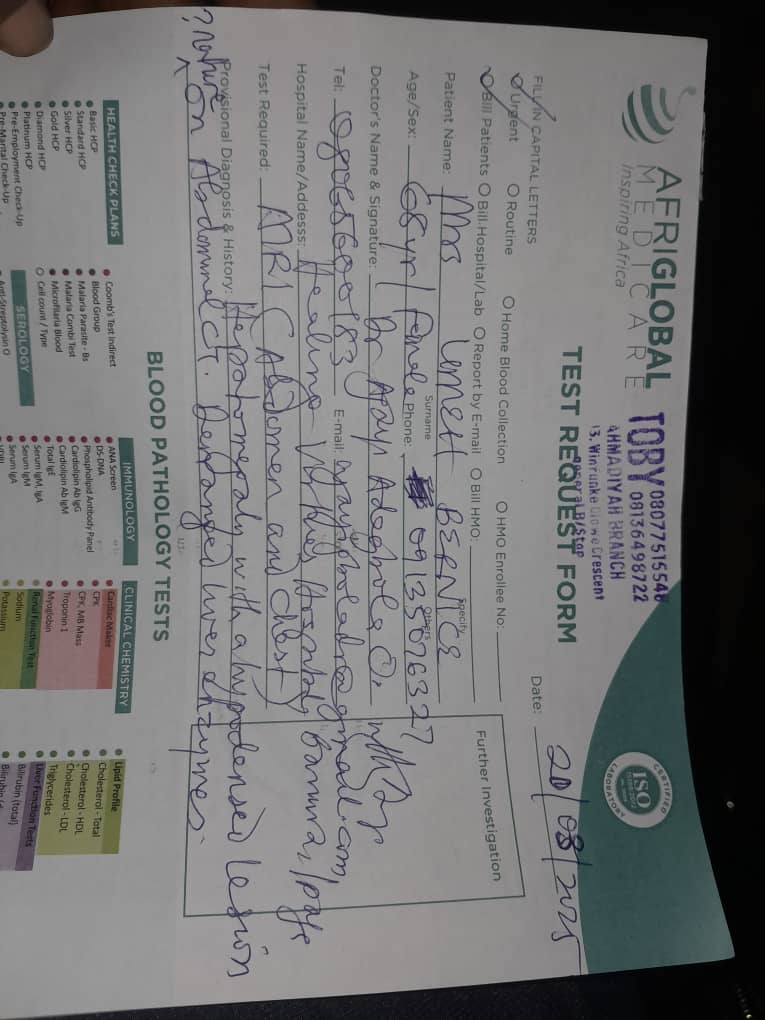 AFRIGLOBAL
MEDICARE
Inspiring Africa
TOBY 08077515548
08136498722
AHMADIYAH BRANCH
Crescent
B/Stop
CERTIFIED
ISO
LABORATORY
TEST REQUEST FORM
Date: 20/08/2025
FILL IN CAPITAL LETTERS
Urgent Routine Home Blood Collection HMO Enrollee No:
Bill Patients Bill Hospital/Lab Report by E-mail Bill HMO: Specify
Further Investigation
Patient Name: Mrs BERNICE
Surname Others
Age/Sex: 68yr/Female Phone: 09135076327
Doctor's Name & Signature: Dr Ajayi
Tel: E-mail:
Hospital Name/Addesss: Healing Hospital
Test Required: MRI (Abdomen and Chest)
Provisional Diagnosis & History: Hepatomegaly with a hypodensed lesion
? nature on Abdominal CT. Deranged liver enzymes.
BLOOD PATHOLOGY TESTS
HEALTH CHECK PLANS
Basic HCP
Standard HCP
Silver HCP
Gold HCP
Diamond HCP
Platinum HCP
Pre-Employment Check-Up
Pre-Marital Check-Up
Coomb's Test Indirect
Blood Group
Malaria Parasite - Bs
Malaria Combi Test
Microfilaria Blood
Cell count / Type
SEROLOGY
Anti-Streptolysin O
IMMUNOLOGY
ANA Screen
DS-DNA
Phospholipid Antibody Panel
Cardiolipin Ab IgG
Cardiolipin Ab IgM
Total IgE
Serum IgM, IgA
Serum IgM
Serum IgA
CLINICAL CHEMISTRY
Cardiac Maker
CPK
CPK, MB Mass
Troponin 1
Myoglobin
Renal Function Test
Sodium
Potassium
Lipid Profile
Cholesterol - Total
Cholesterol - HDL
Cholesterol - LDL
Triglycerides
Liver Function Tests
Bilirubin (total)